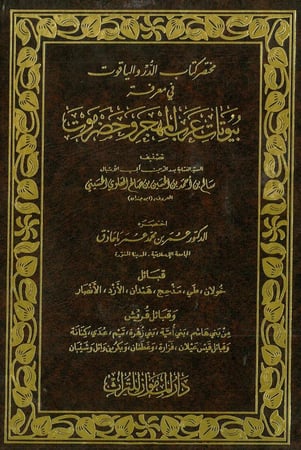 مختصر كتاب الدر والياقوت
في معرفة
بيوتات عرب المهجر وحضرموت
تصنيف
سالم بن أحمد بن الحسين بن صالح العلوي الحسيني
اختصره
الدكتور عمر بن محمد عمر باحاذق
الجامعة الإسلامية - المدينة المنورة
قبائل
خولان، طي، مذحج، همدان، الأزد، الأنصار
وقبائل قريش
من بني هاشم، بني أمية، بني زهرة، تيم، عدي، كنانة
وقبائل قيس عيلان، فزارة، وغطفان، وبكر بن وائل وشيبان
دار المأمون للتراث